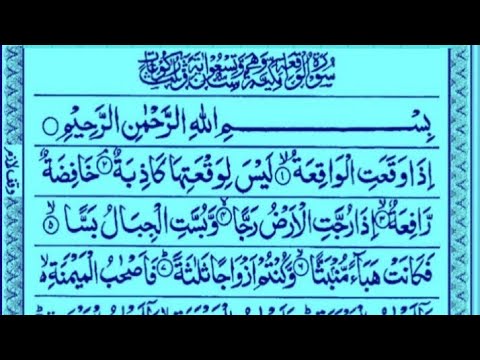 سُوْرَةُ الْوَاقِعَةِ مَكِّيَّةٌ وَّهِيَ سِتٌّ وَّتِسْعُوْنَ اٰيَةً وَّثَلٰثُ رُكُوْعَاتٍ
بِسْمِ اللهِ الرَّحْمٰنِ الرَّحِيْمِ
اِذَا وَقَعَتِ الْوَاقِعَةُ ۙ۱ لَيْسَ لِوَقْعَتِهَا كَاذِبَةٌ ۘ۲ خَافِضَةٌ
رَّافِعَةٌ ۙ۳ اِذَا رُجَّتِ الْاَرْضُ رَجًّا ۙ۴ وَّبُسَّتِ الْجِبَالُ بَسًّا ۙ۵
فَكَانَتْ هَبَآءً مُّنْۢبَثًّا ۙ۶ وَّكُنْتُمْ اَزْوَاجًا ثَلٰثَةً ؕ۷ فَاَصْحٰبُ الْمَيْمَنَةِ ۙ
وقف لازم